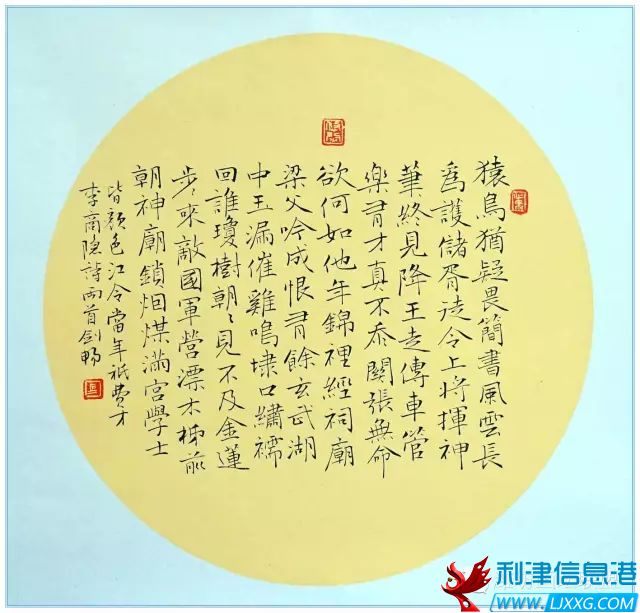 猿鳥猶疑畏簡書風雲長
爲護儲胥徒令上將揮神
筆終見降王走傳車管
樂有才真不忝關張無命
欲何如他年錦裡經祠廟
梁父吟成恨有餘玄武湖
中玉漏催雞鳴埭口繡襦
回誰瓊樹朝〻見不及金蓮
步〻來敵國軍營漂木柹前
朝神廟鎖烟煤滿宮學士
皆顏色江令當年祇費才
李商隱詩兩首劍暢
利津信息港
WWW.LJXXG.COM